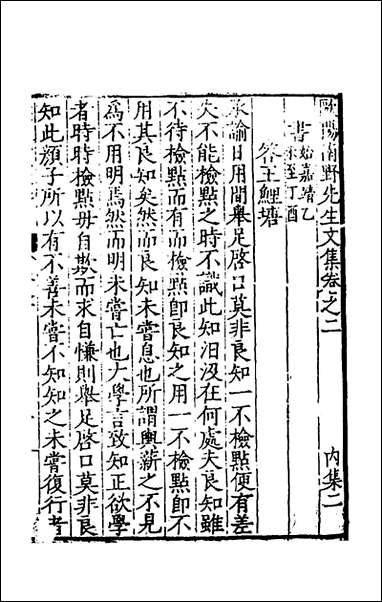 歐陽南野先生文集卷之二　內集二
書始嘉靖乙未至丁酉
答王鯉塘
承諭日用間舉足啓口莫非良知一不檢點便有差
失不能檢點之時不識此知汨汲在何處夫良知雖
不待檢點而有而檢點即良知之用一不檢點即不
用其良知矣然而良知未嘗息也所謂輿薪之不見
爲不用明焉然而明未嘗亡也大學言致知正欲學
者時時檢點毋自欺而求自慊則舉足啓口莫非良
知此顏子所以有不善未嘗不知知之未嘗復行者